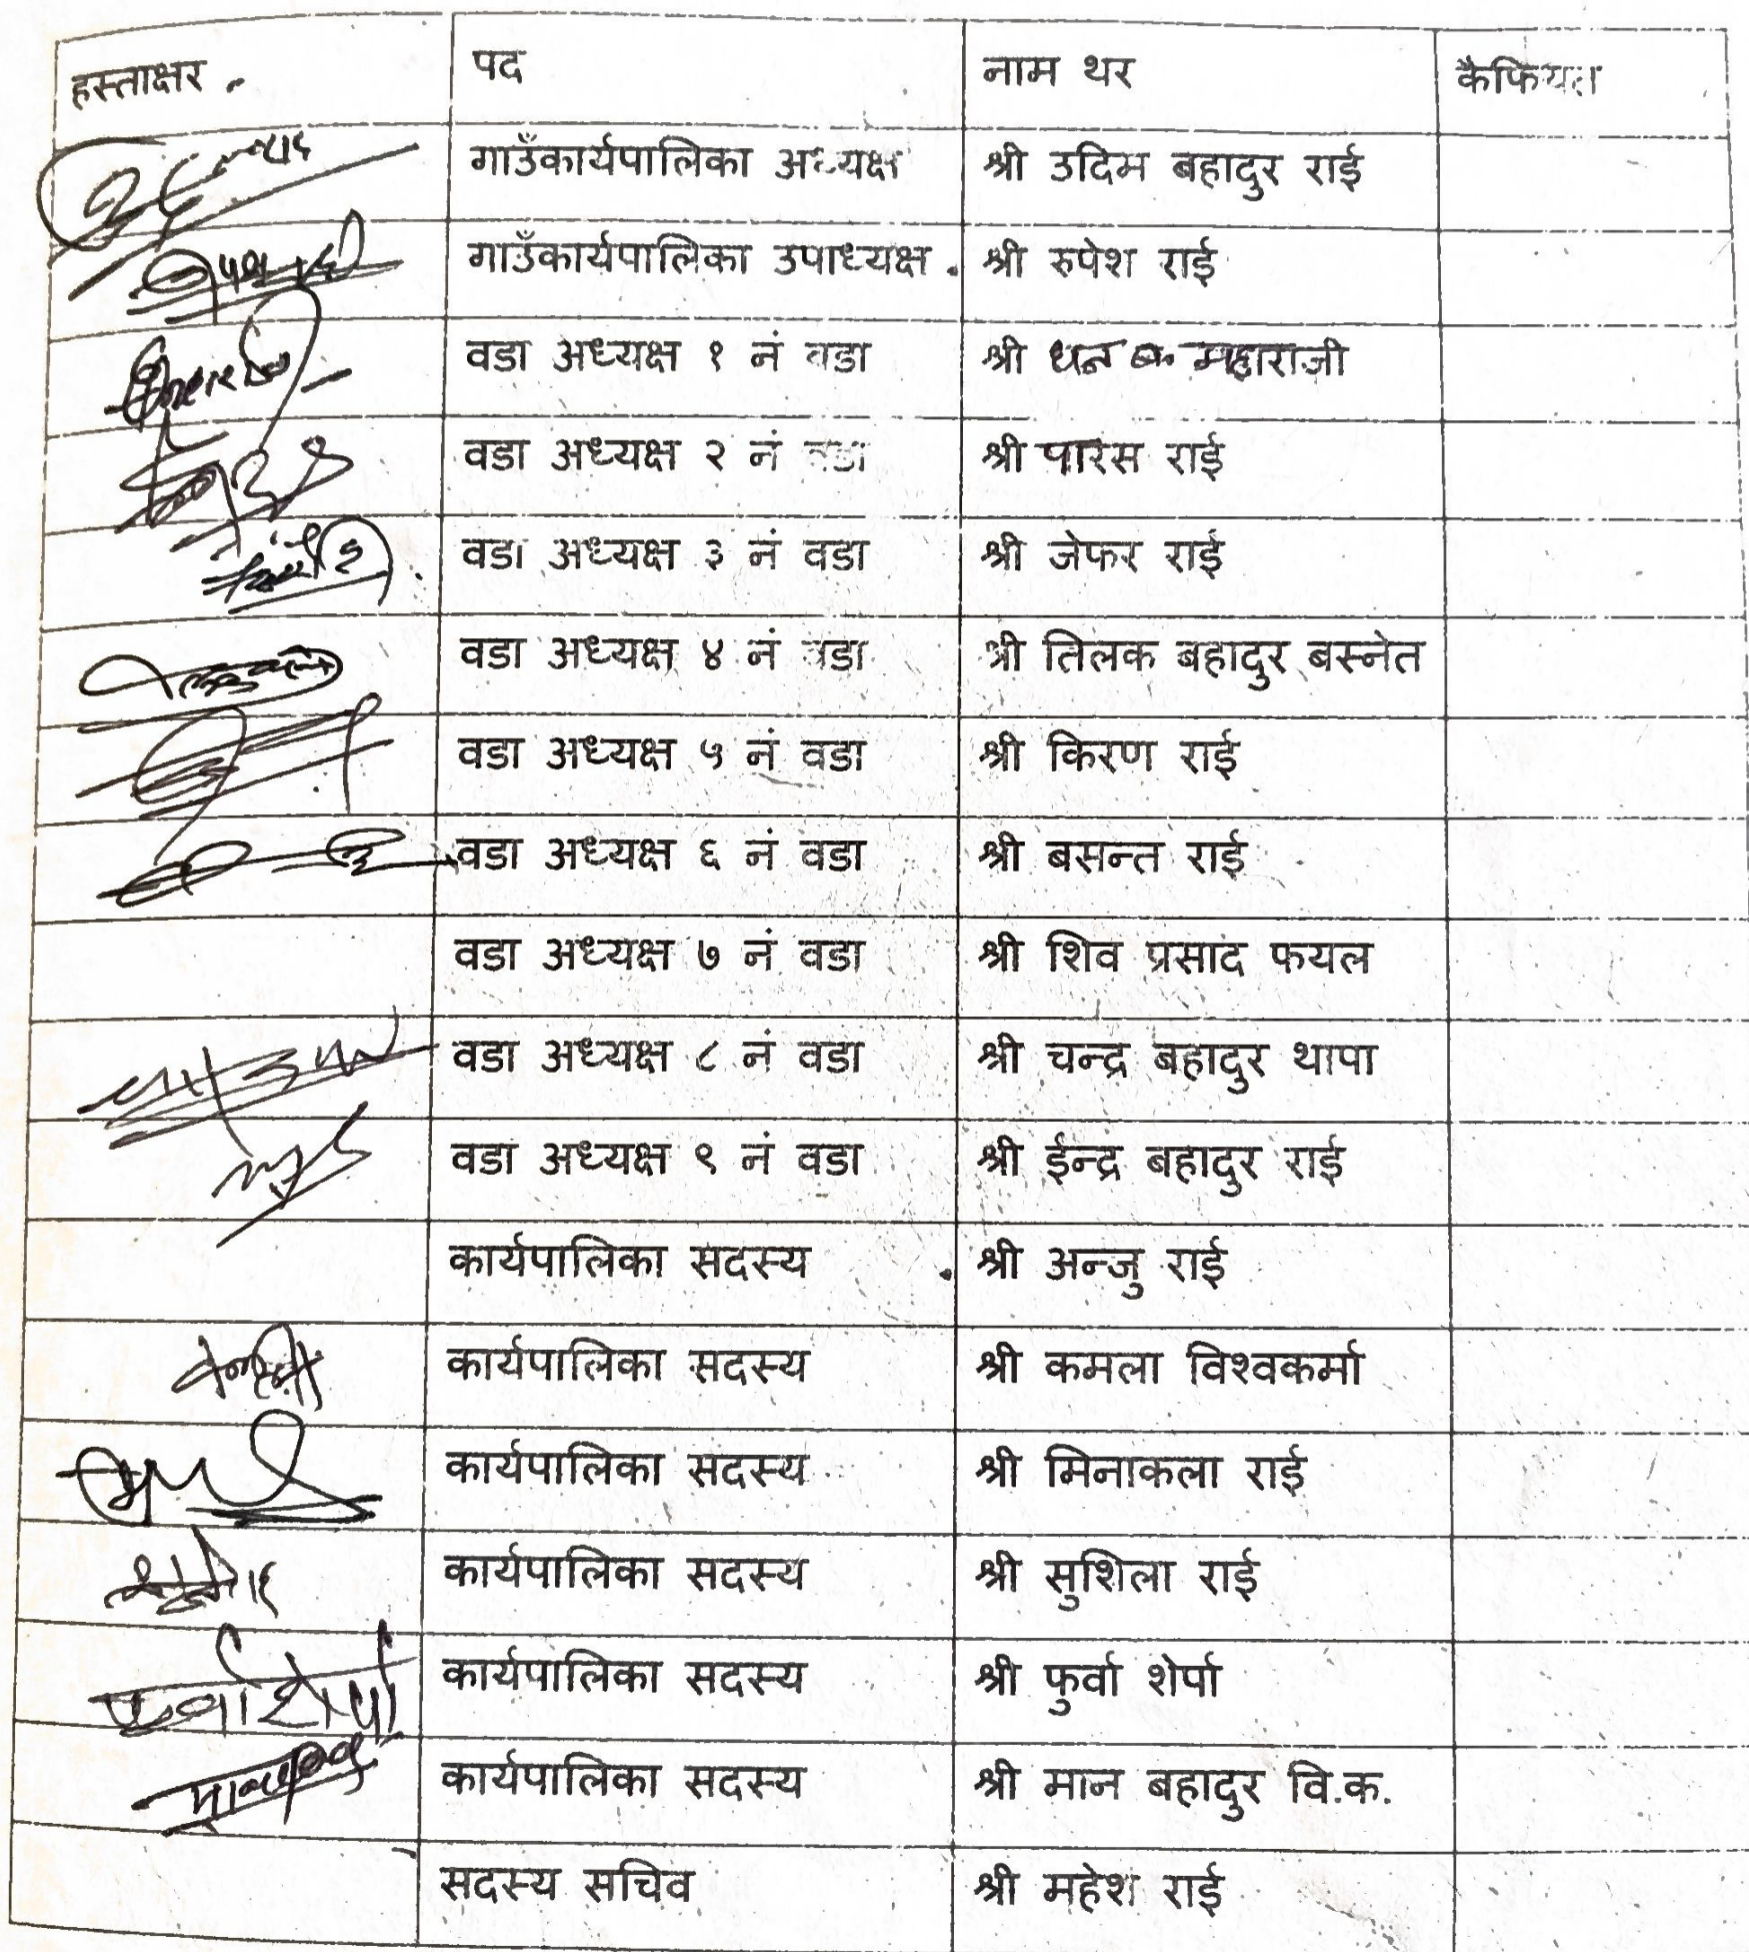 हस्ताक्षर पद नाम थर कैफियत
गाउँकार्यपालिका अध्यक्ष श्री उदिम बहादुर राई
गाउँकार्यपालिका उपाध्यक्ष श्री रुपेश राई
वडा अध्यक्ष १ नं वडा श्री धन महाराजी
वडा अध्यक्ष २ नं वडा श्री पारस राई
वडा अध्यक्ष ३ नं वडा श्री जेफर राई
वडा अध्यक्ष ४ नं वडा श्री तिलक बहादुर बस्नेत
वडा अध्यक्ष ५ नं वडा श्री किरण राई
वडा अध्यक्ष ६ नं वडा श्री बसन्त राई
वडा अध्यक्ष ७ नं वडा श्री शिव प्रसाद फयल
वडा अध्यक्ष ८ नं वडा श्री चन्द्र बहादुर थापा
वडा अध्यक्ष ९ नं वडा श्री ईन्द्र बहादुर राई
कार्यपालिका सदस्य श्री अन्जु राई
कार्यपालिका सदस्य श्री कमला विश्वकर्मा
कार्यपालिका सदस्य श्री मिनाकला राई
कार्यपालिका सदस्य श्री सुशिला राई
फुर्वा शेर्पा कार्यपालिका सदस्य श्री फुर्वा शेर्पा
कार्यपालिका सदस्य श्री मान बहादुर वि.क.
सदस्य सचिव श्री महेश राई